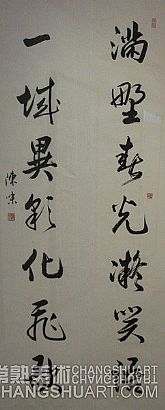 满野春光凝笑语
一域异彩化飞虹
陈京
常熟美術 CHANGSHUART
HANGSHUART.COM